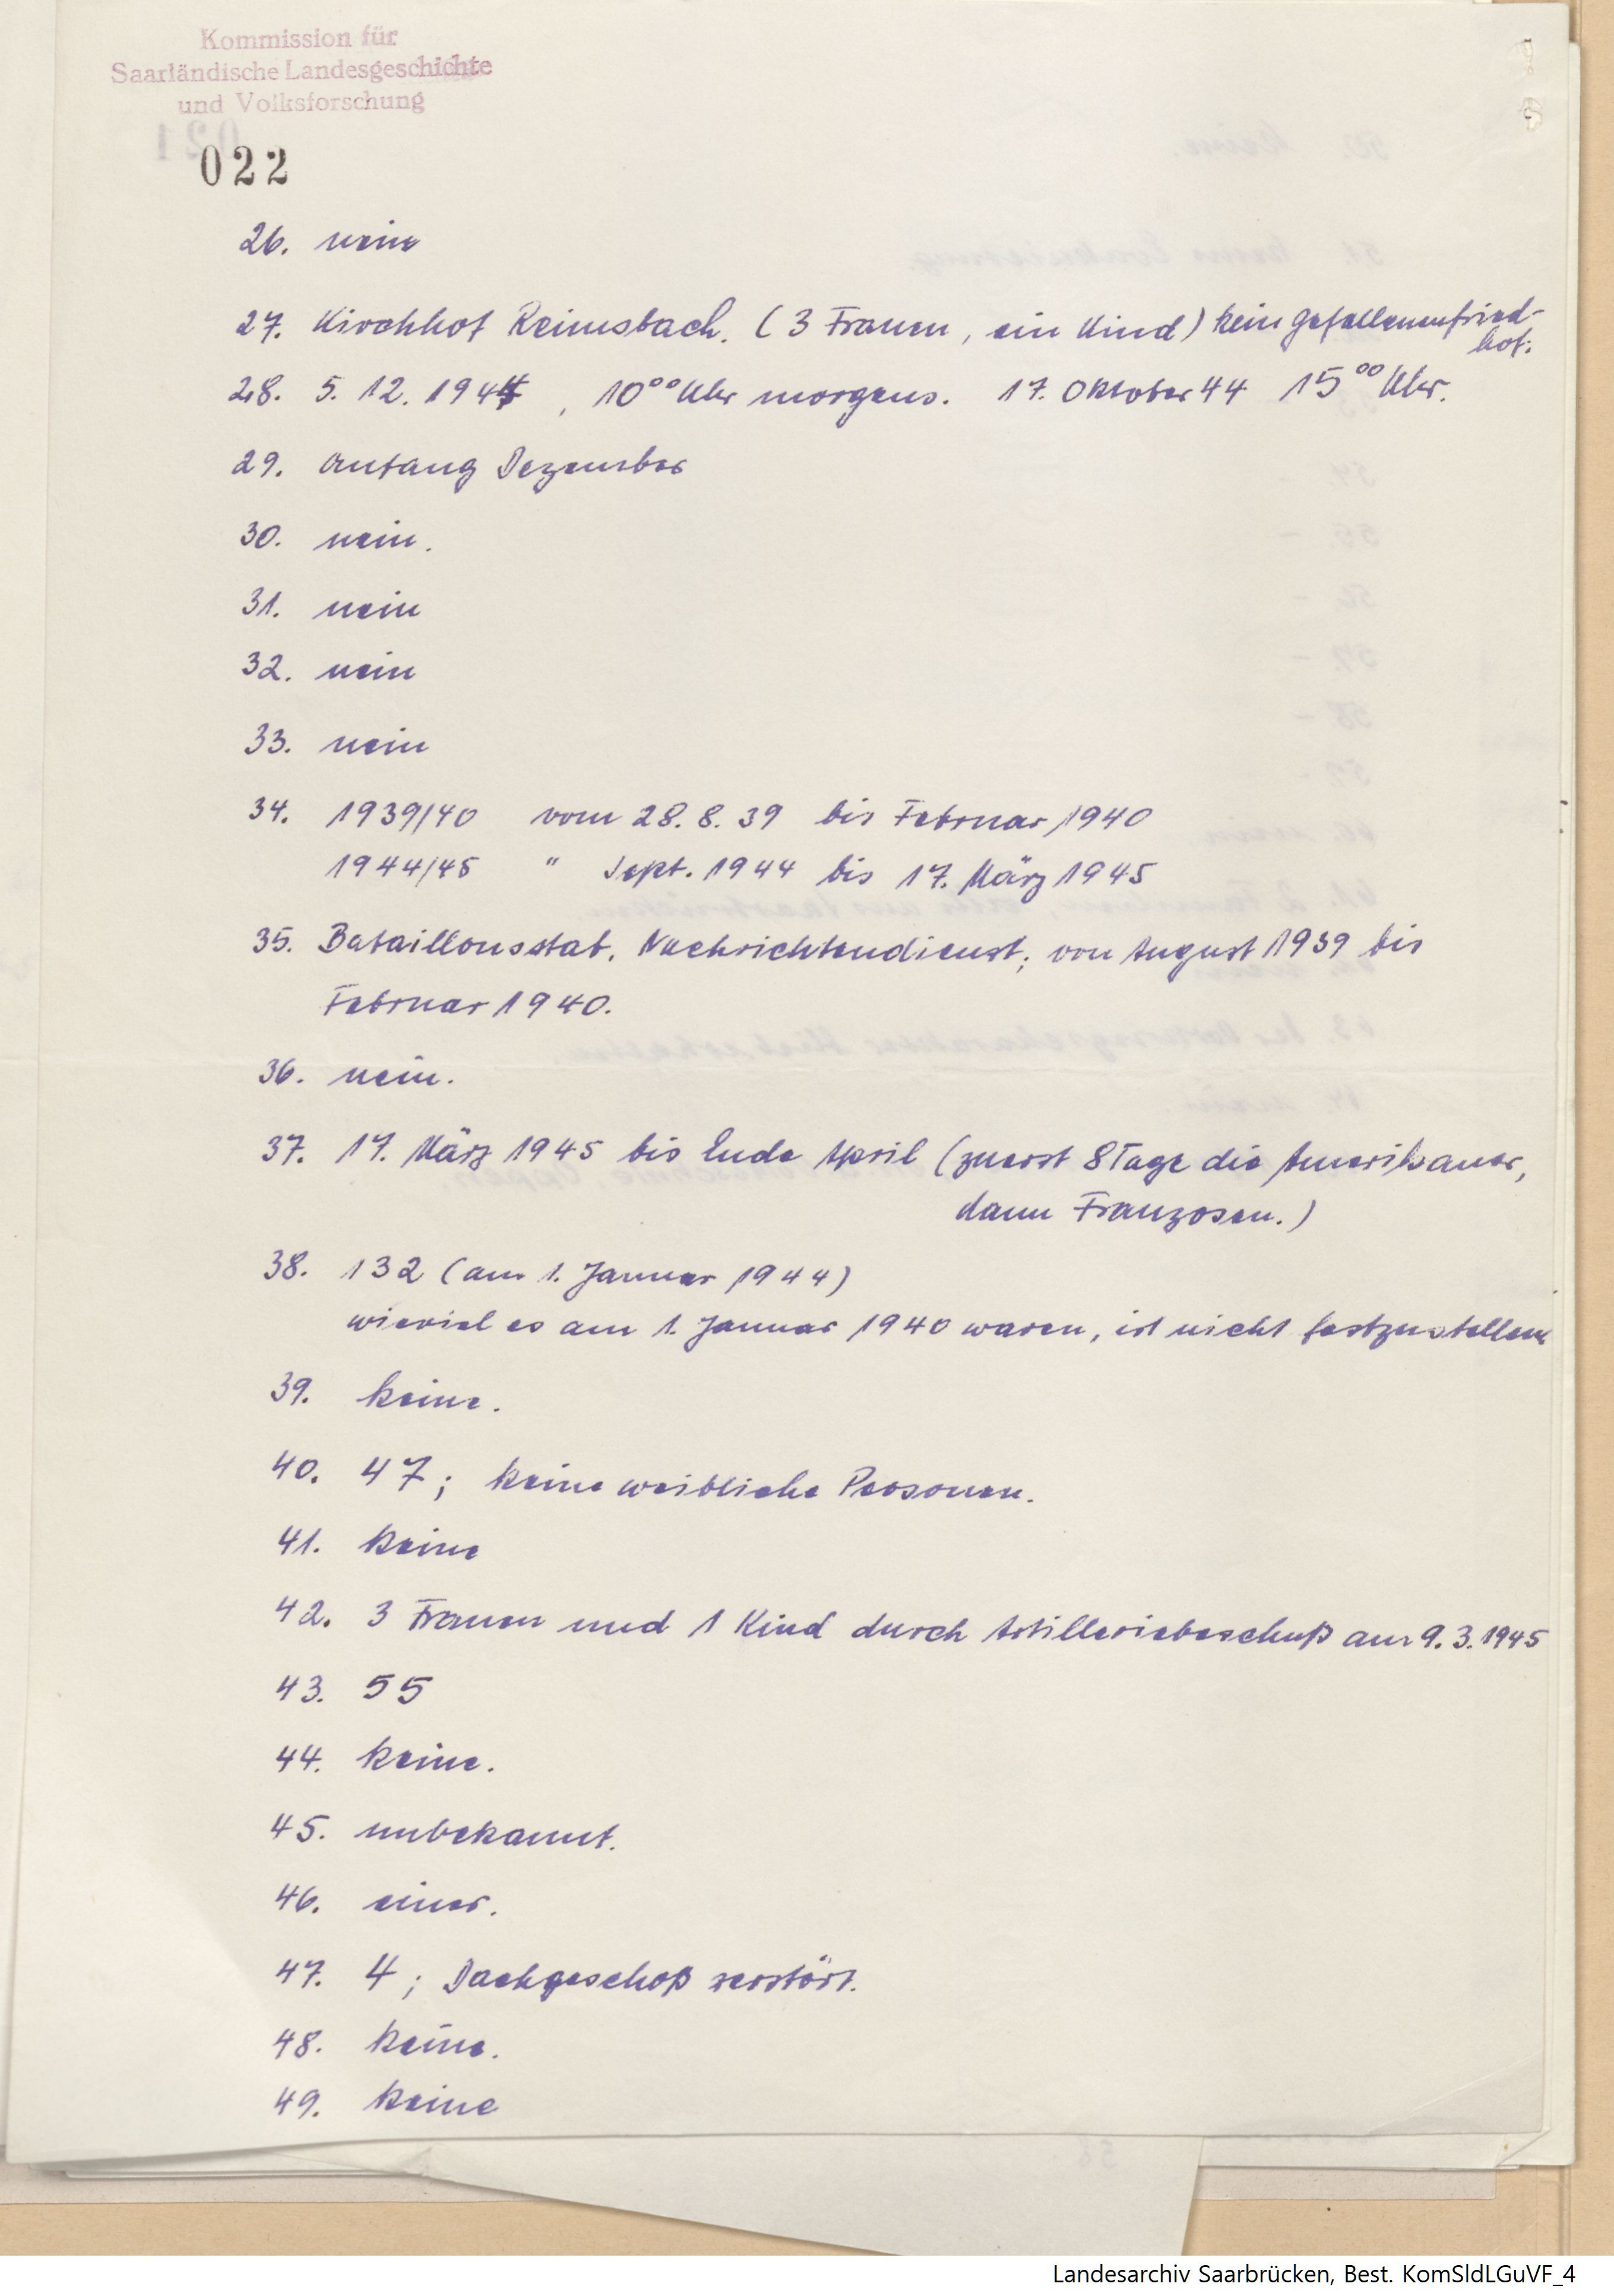 Kommission für
Saarländische Landesgeschichte
und Volksforschung
022
26. nein
27. Kirchhof Reimsbach. (3 Frauen, ein Kind) kein Gefallenenfried-
hof.
28. 5. 12. 1944, 10⁰⁰ Uhr morgens. 17. Oktober 44 15⁰⁰ Uhr.
29. Anfang Dezember
30. nein.
31. nein
32. nein
33. nein
34. 1939/40 vom 28. 8. 39 bis Februar 1940
1944/45 " Sept. 1944 bis 17. März 1945
35. Bataillonsstab, Nachrichtendienst; von August 1939 bis
Februar 1940.
36. nein.
37. 17. März 1945 bis Ende April (zuerst 8 Tage die Amerikaner,
dann Franzosen.)
38. 132 (am 1. Januar 1944)
wieviel es am 1. Januar 1940 waren, ist nicht festzustellen
39. keine.
40. 47; keine weibliche Personen.
41. keine
42. 3 Frauen und 1 Kind durch Artilleriebeschuß am 9. 3. 1945
43. 55
44. keine.
45. unbekannt.
46. einer.
47. 4; Dachgeschoß zerstört.
48. keine.
49. keine
Landesarchiv Saarbrücken, Best. KomSldLGuVF_4